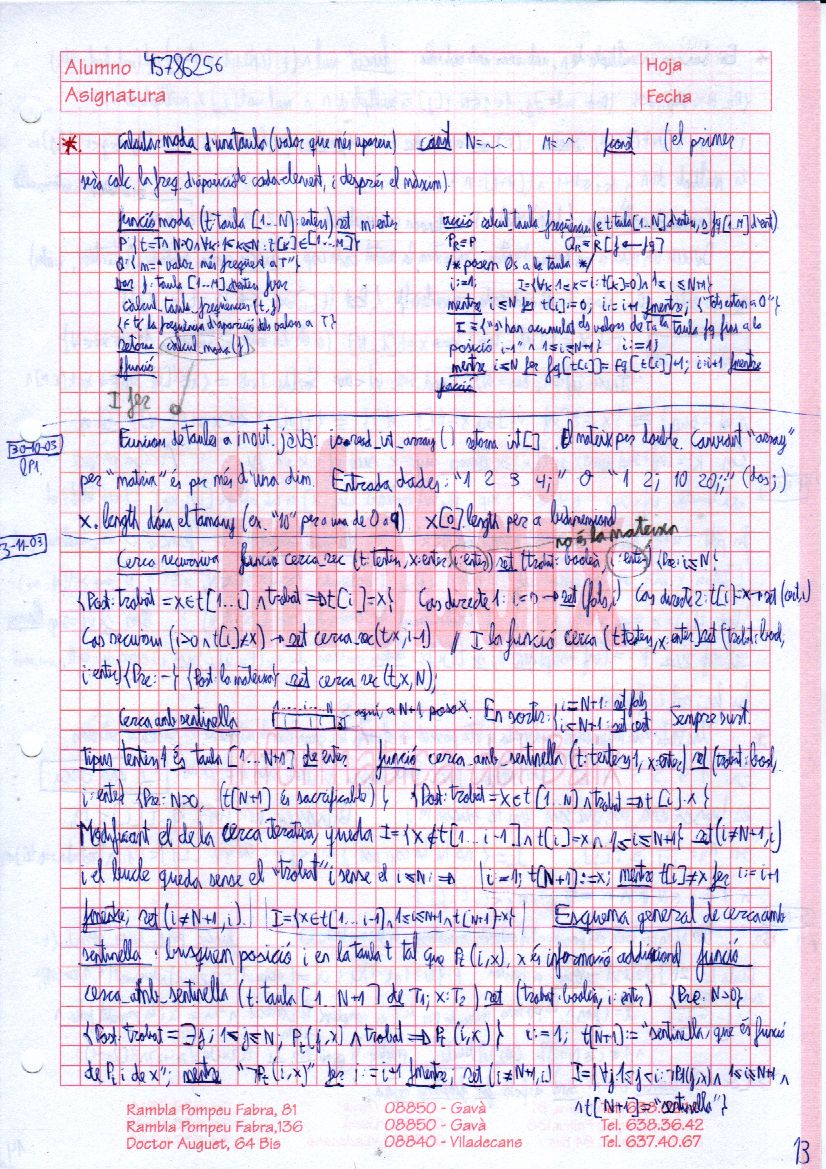 Alumno 45786256
Hoja
Asignatura
Fecha
* Calcular moda d'una taula (valor que més apareix) const N=~~ M=~ fconst (el primer
serà calc. la freq. d'aparició de cada element, i després el màxim).
funció moda (t: taula [1...N]: enters) ret m: enter
P{t=T∧N>0∧∀k:1≤k≤N:t[k]∈[1...M]}
Q:{m="valor més freqüent a T"}
var f: taula [1...M] d'enters fvar
calcul_taula_freqüencies (t, f)
{f té la freqüència d'aparició dels valors a T}
retorna calcul_moda(f)
ffunció
I fer
acció calcul_taula_freqüencies (e t: taula[1..N] d'enter, s fq[1..M] d'ent)
PR=P QR=R[f←fq]
/* posem 0s a la taula */
i:=1; I={∀k:1≤k<i:t[k]=0∧1≤i≤N+1}
mentre i≤N fer t[i]:=0; i:=i+1 fmentre; {"Tots estan a 0"}
I={"s'han acumulat els valors de T a la taula fq fins a la
posició i-1" ∧ 1≤i≤N+1} i:=1;
mentre i≤N fer fq[t[i]]=fq[t[i]]+1; i:=i+1 fmentre
facció
30-10-03
Funcions de taules a inout.java: io.read_int_array() retorna int[]. El mateix per double. Canviant "array"
per "matrix" és per més d'una dim. Entrada dades: "1 2 3 4;" o "1 2; 10 20;;" (dos ;)
x.length dóna el tamany (ex. "10" per a una de 0 a 9) x[0].length per a bidimensional
3-11-03
no és la mateixa
Cerca recursiva funció cerca_rec (t: tenters, x: enter, i: enter) ret (trobat: booleà, i: enter) {Pre: i≤N}
{Post: trobat = x∈t[1...i] ∧ trobat ⇒ t[i]=x} Cas directe 1: i=0 → ret (fals, i) Cas directe 2: t[i]=x → ret (cert, i)
Cas recursiu (i>0 ∧ t[i]≠x) → ret cerca_rec(t,x,i-1) // I la funció cerca (t: tenters, x: enter) ret (trobat: bool,
i: enter) {Pre: -} {Post: la mateixa} ret cerca rec (t, x, N);
Cerca amb sentinella 1......N aquí, a N+1, poso x. En sortir: {i=N+1: ret fals
i<N+1: ret cert. Sempre surt.
Tipus tenters1 és taula [1...N+1] de enter funció cerca_amb_sentinella (t: tenters1, x: enter) ret (trobat: bool,
i: enter) {Pre: N>0, (t[N+1] és sacrificable)} {Post: trobat = x∈t[1...N] ∧ trobat ⇒ t[i]=x}
Modificant el de la cerca iterativa, queda I={x∉t[1...i-1] ∧ t[i]=x ∧ 1≤i≤N+1} ret (i≠N+1, i)
i el bucle queda sense el "trobat" i sense el i≤N: ⇒ i=1; t[N+1]:=x; mentre t[i]≠x fer i:=i+1
fmentre; ret (i≠N+1, i). I={x∉t[1...i-1]∧1≤i≤N+1∧t[N+1]=x} Esquema general de cerca amb
sentinella: busquem posició i en la taula t tal que Pt(i,x), x és informació addicional funció
cerca_amb_sentinella (t: taula [1...N+1] de T1; x: T2) ret (trobat: booleà, i: enter) {Pre: N>0}
{Post: trobat = ∃j; 1≤j≤N; Pt(j,x) ∧ trobat ⇒ Pt(i,x)} i:=1; t[N+1]:= "sentinella, que és funció
de Pt i de x"; mentre "¬Pt(i,x)" fer i:=i+1 fmentre; ret (i≠N+1, i) I={∀j:1≤j<i:¬Pt(j,x) ∧ 1≤i≤N+1 ∧
∧ t[N+1]="sentinella"}
Rambla Pompeu Fabra, 81 08850 - Gavà
Rambla Pompeu Fabra,136 08850 - Gavà Tel. 638.36.42
Doctor Auguet, 64 Bis 08840 - Viladecans Tel. 637.40.67
13